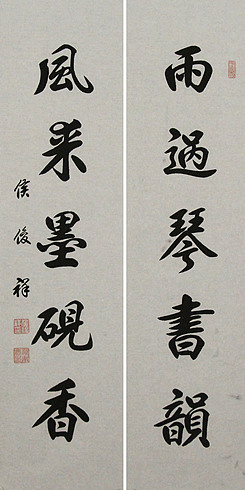 雨過琴書韻
風来墨硯香
侯俊祥